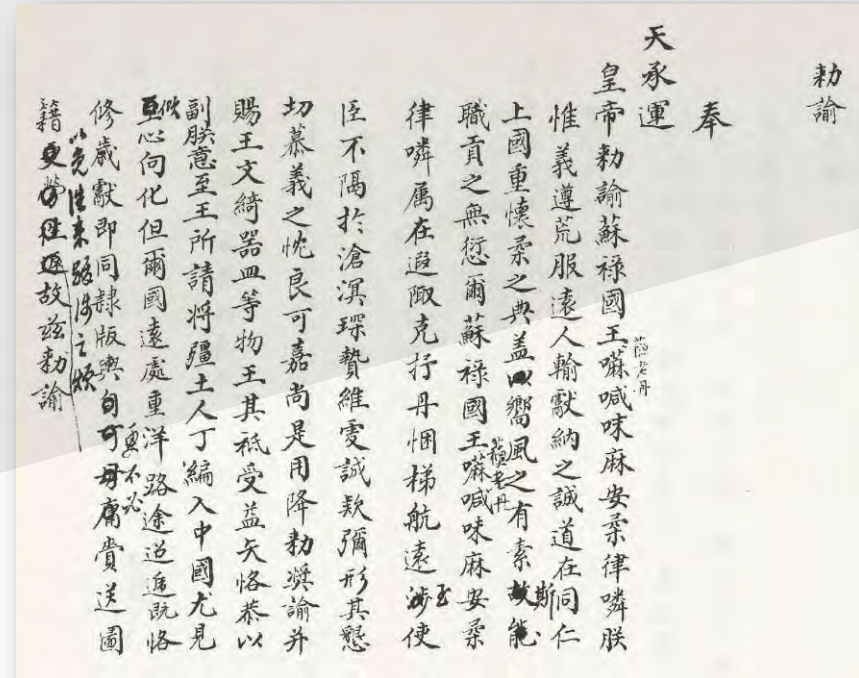 勅諭
奉
天承運
皇帝勅諭蘇祿國王嘛喊味麻安柔律嶙朕
蘇老丹
惟義遵荒服遠人輸獻納之誠道在同仁
上國重懷柔之典盖以嚮風之有素故能
斯
職貢之無愆爾蘇祿國王嘛喊味麻安柔
蘇老丹
律嶙属在遐陬克抒丹悃梯航遠涉使
至
臣不隔於滄溟琛贄維虔誠欵彌形其懇
切慕義之忱良可嘉尚是用降勅奨諭并
賜王文綺器皿等物王其祗受益矢恪恭以
副朕意至王所請将疆土人丁編入中國尤見
心向化但爾國遠處重洋路途迢遞既恪
修歲獻即同隸版輿自可毋庸賫送圖
更不必
以免往来跋涉之煩
籍更勞往返故兹勅諭